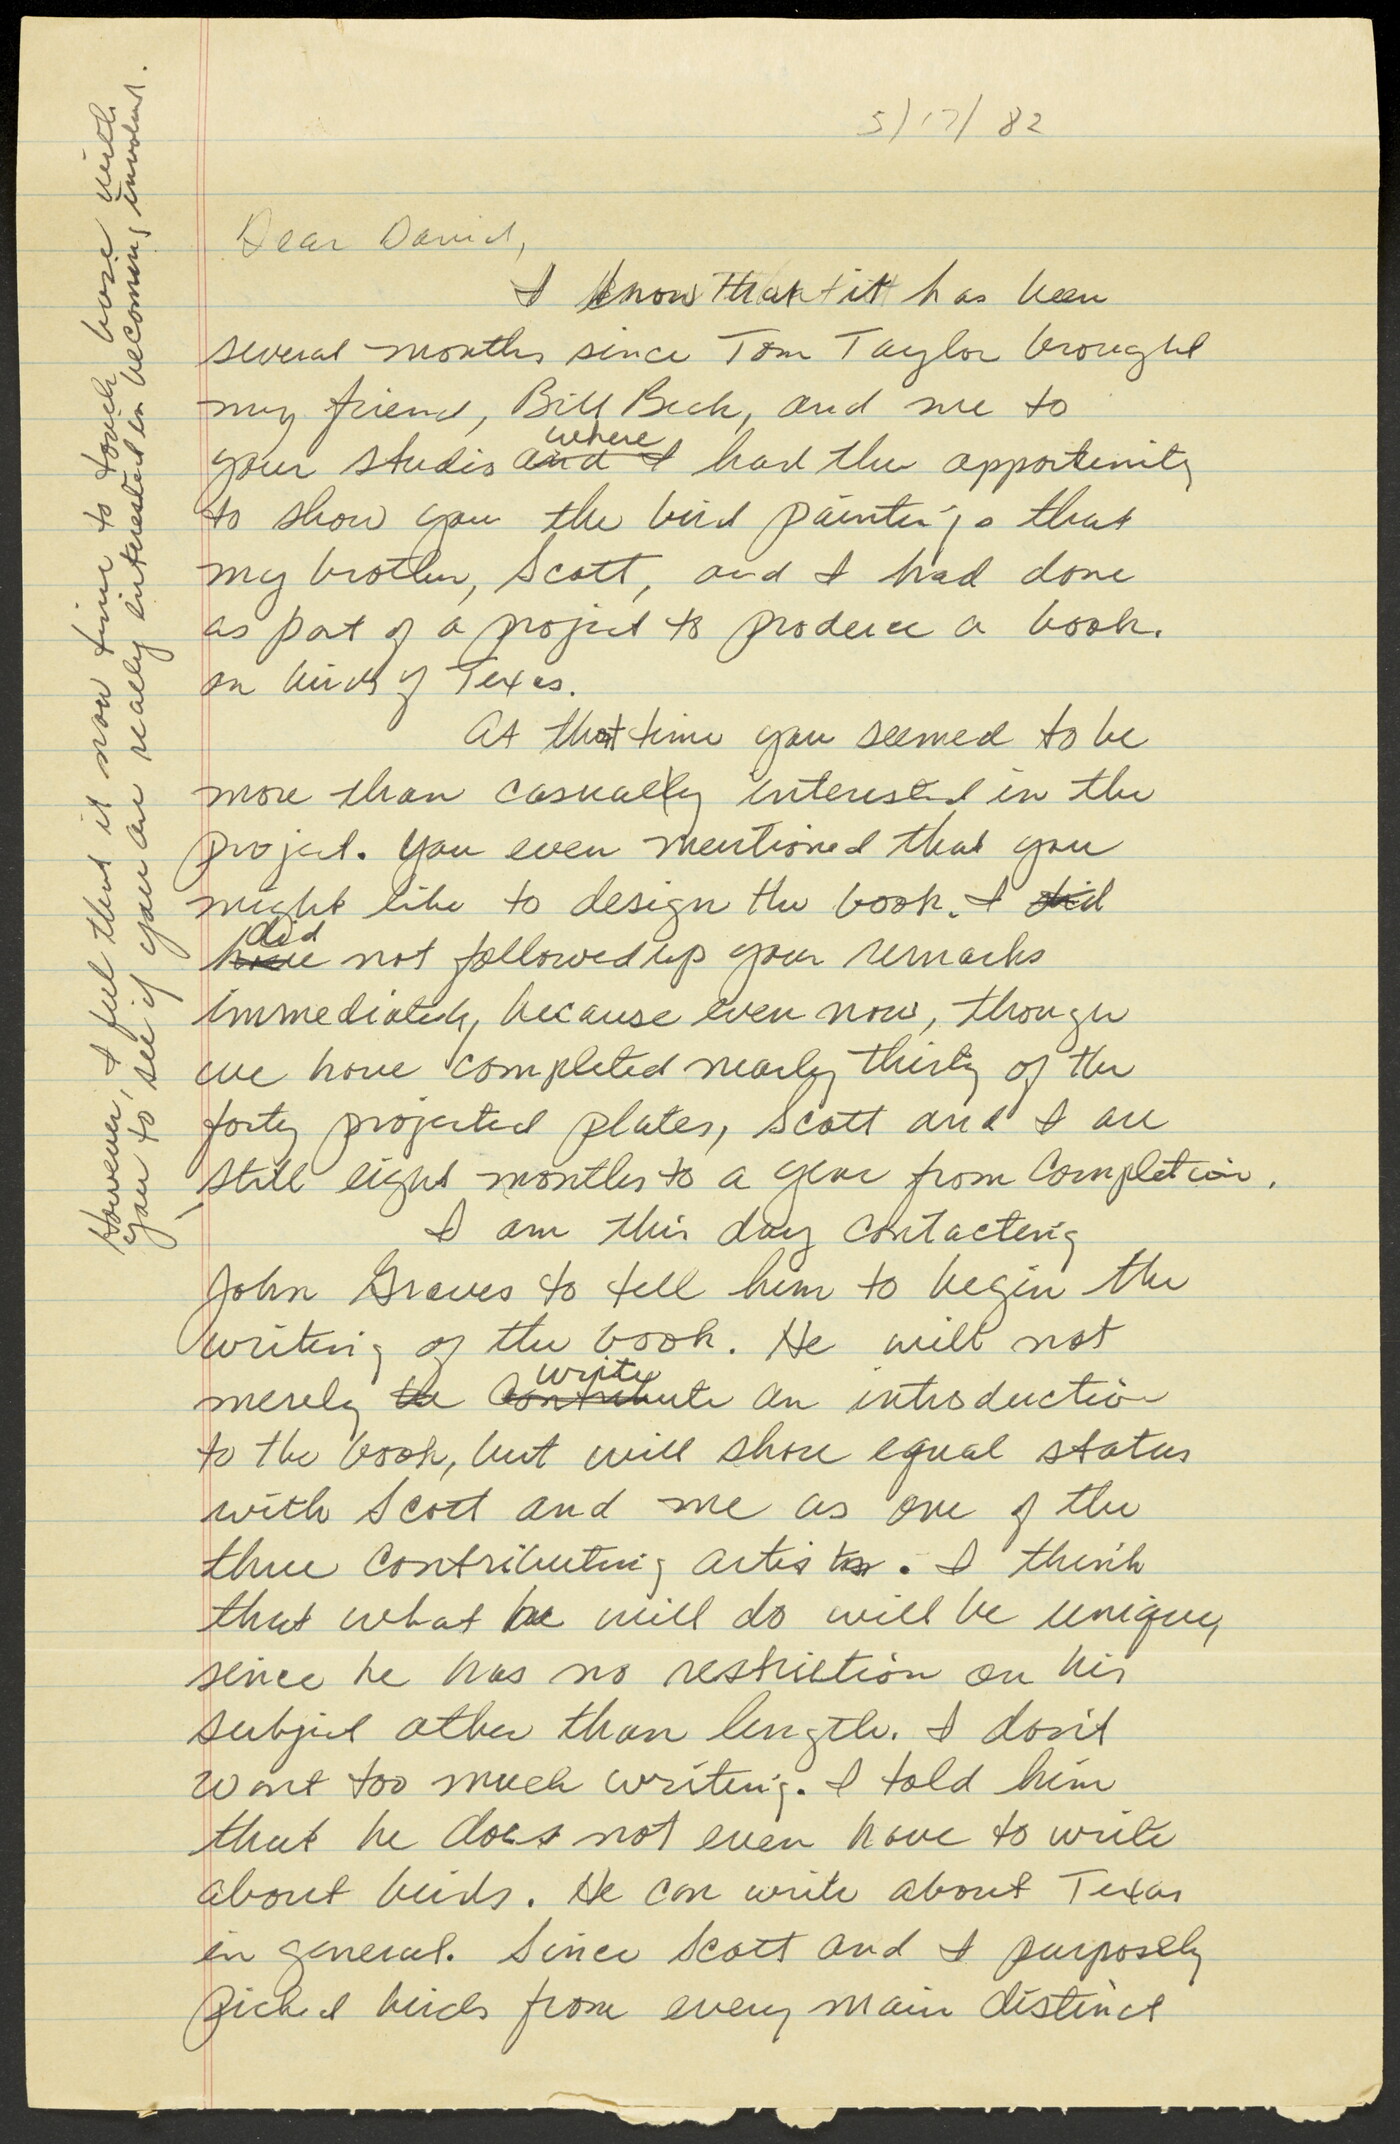 5/17/82
Dear David,
I know that it has been
several months since Tom Taylor brought
my friend, Bill Beck, and me to
your studio and where I had the opportunity
to show you the bird paintings that
my brother, Scott, and I had done
as part of a project to produce a book.
on birds of Texas.
At that time you seemed to be
more than casually interested in the
project. You even mentioned that you
might like to design the book. I did
have did not followed up your remarks
immediately, because even now, though
we have completed nearly thirty of the
forty projected plates, Scott and I are
still eight months to a year from completion.
However, I feel that it now time to touch base with
you to see if you are really interested in becoming involved.
I am this day contacting
John Graves to tell him to begin the
writing of the book. He will not
merely be contribute write an introduction
to the book, but will share equal status
with Scott and me as one of the
three contributing artists. I think
that what he will do will be unique,
since he has no restriction on his
subject other than length. I don't
want too much writing. I told him
that he does not even have to write
about birds. He can write about Texas
in general. Since Scott and I purposely
picked birds from every main distinct